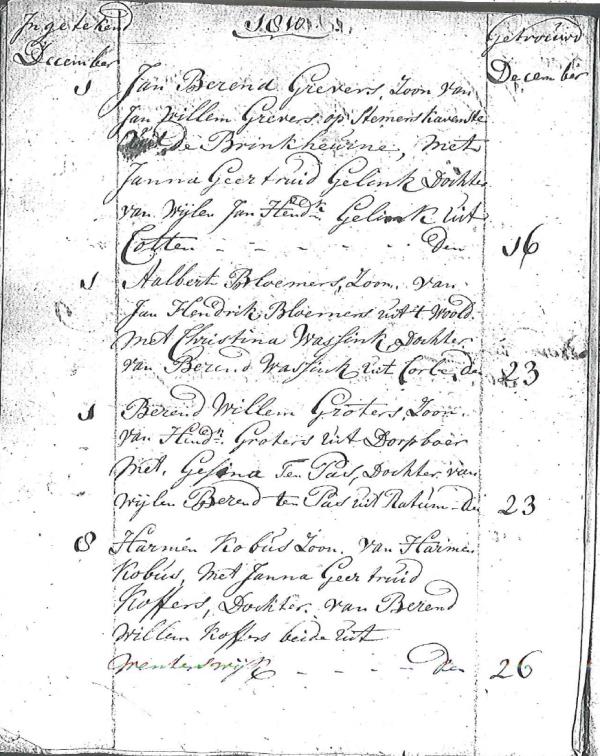 Ingetekend 1810 Getrouwd
December December
1 Jan Berend Grevers, Zoon van
Jan Willem Grevers op Stemerskavenste
de Brinkheurne, Met
Janna Geertruid Gelink Dochter
van Wijlen Jan Hendk Gelink uit
Cotten - - - - - den 16
1 Aalbert Bloemers, Zoon. van
Jan Hendrik Bloemers uit t Woold.
Met Christina Wassink Dochter
van Berend Wassink uit Corle, den 23
1 Berend Willem Groters, Zoon.
van Hindk Groters uit Dorpboer
Met. Gesina Ten Pas, Dochter van
Wijlen Berend ten Pas uit Ratum - den 23
8 Harmen Kobus Zoon. van Harmen
Kobus, Met Janna Geertruid
Koffers, Dochter. van Berend
Willem Koffers beide uit
Wenterswijk - - - - - den 26